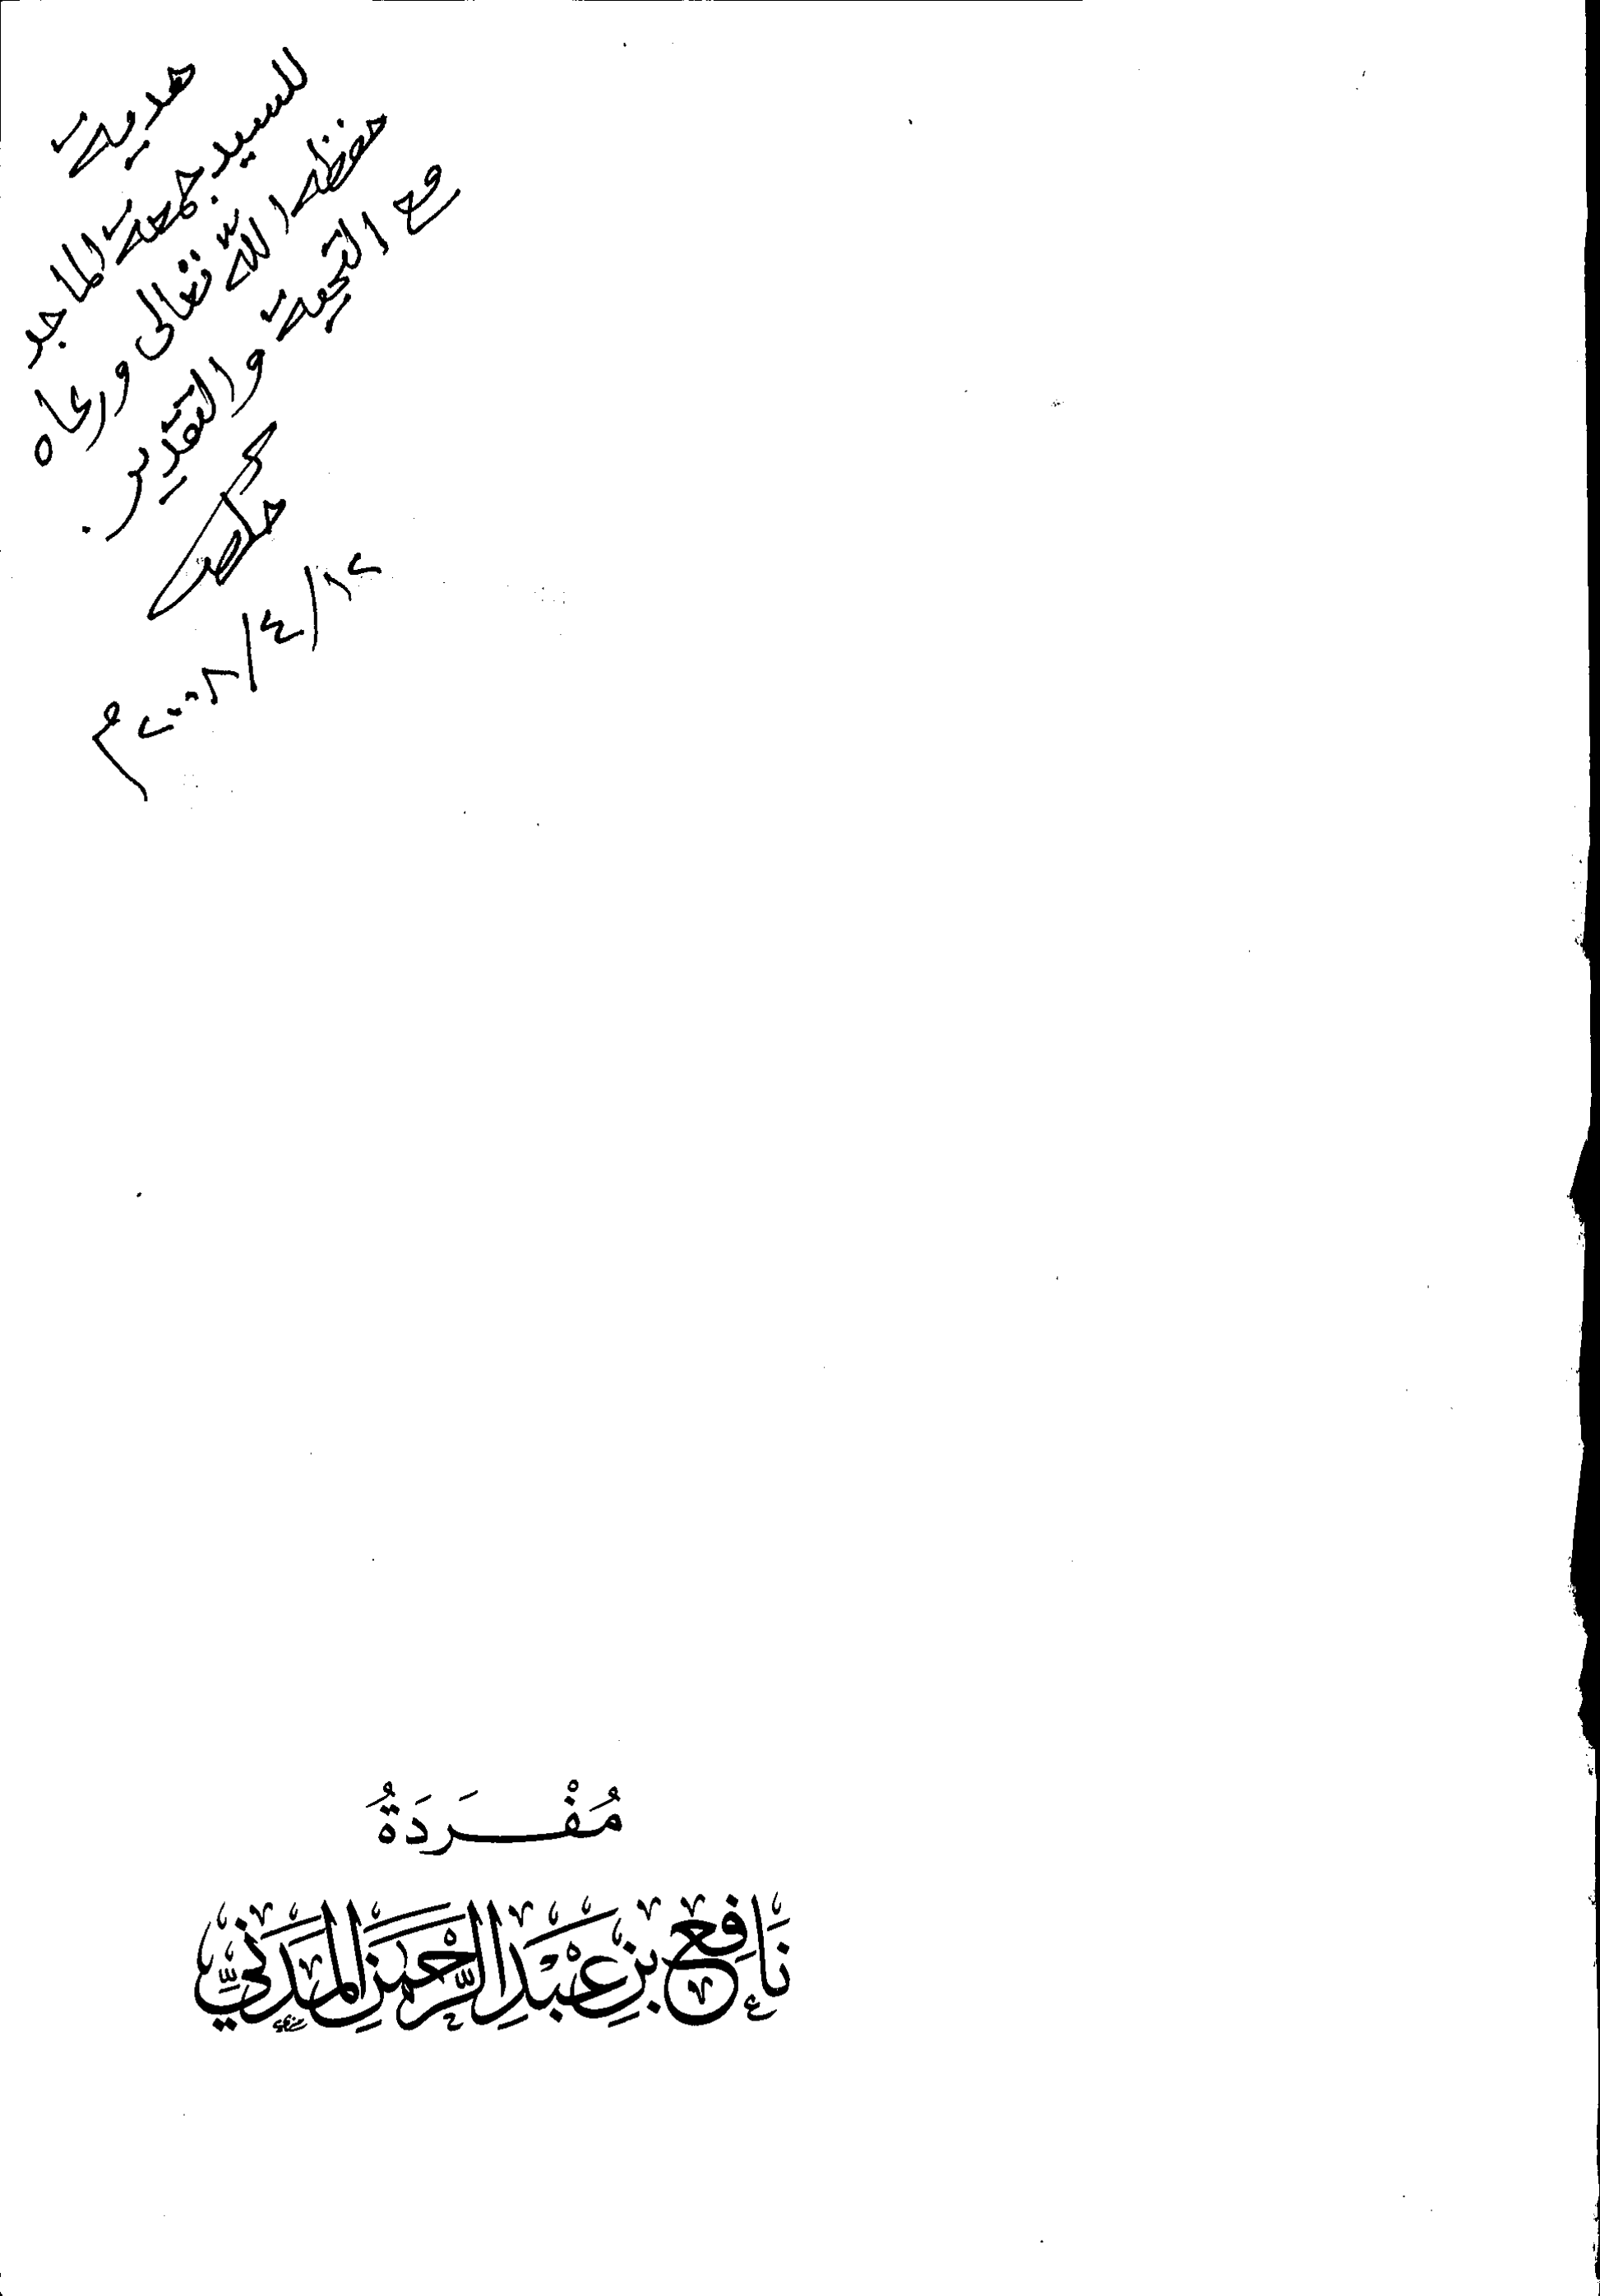 هدية
للسيد جمعة الماجد
حفظه الله تعالى ورعاه
مع التحية والتقدير.
١٢/٤/٢٠٠٨م
مُفْرَدَةُ
نَافِعِ بْنِ عَبْدِ الرَّحْمَنِ الْمَدَنِيِّ